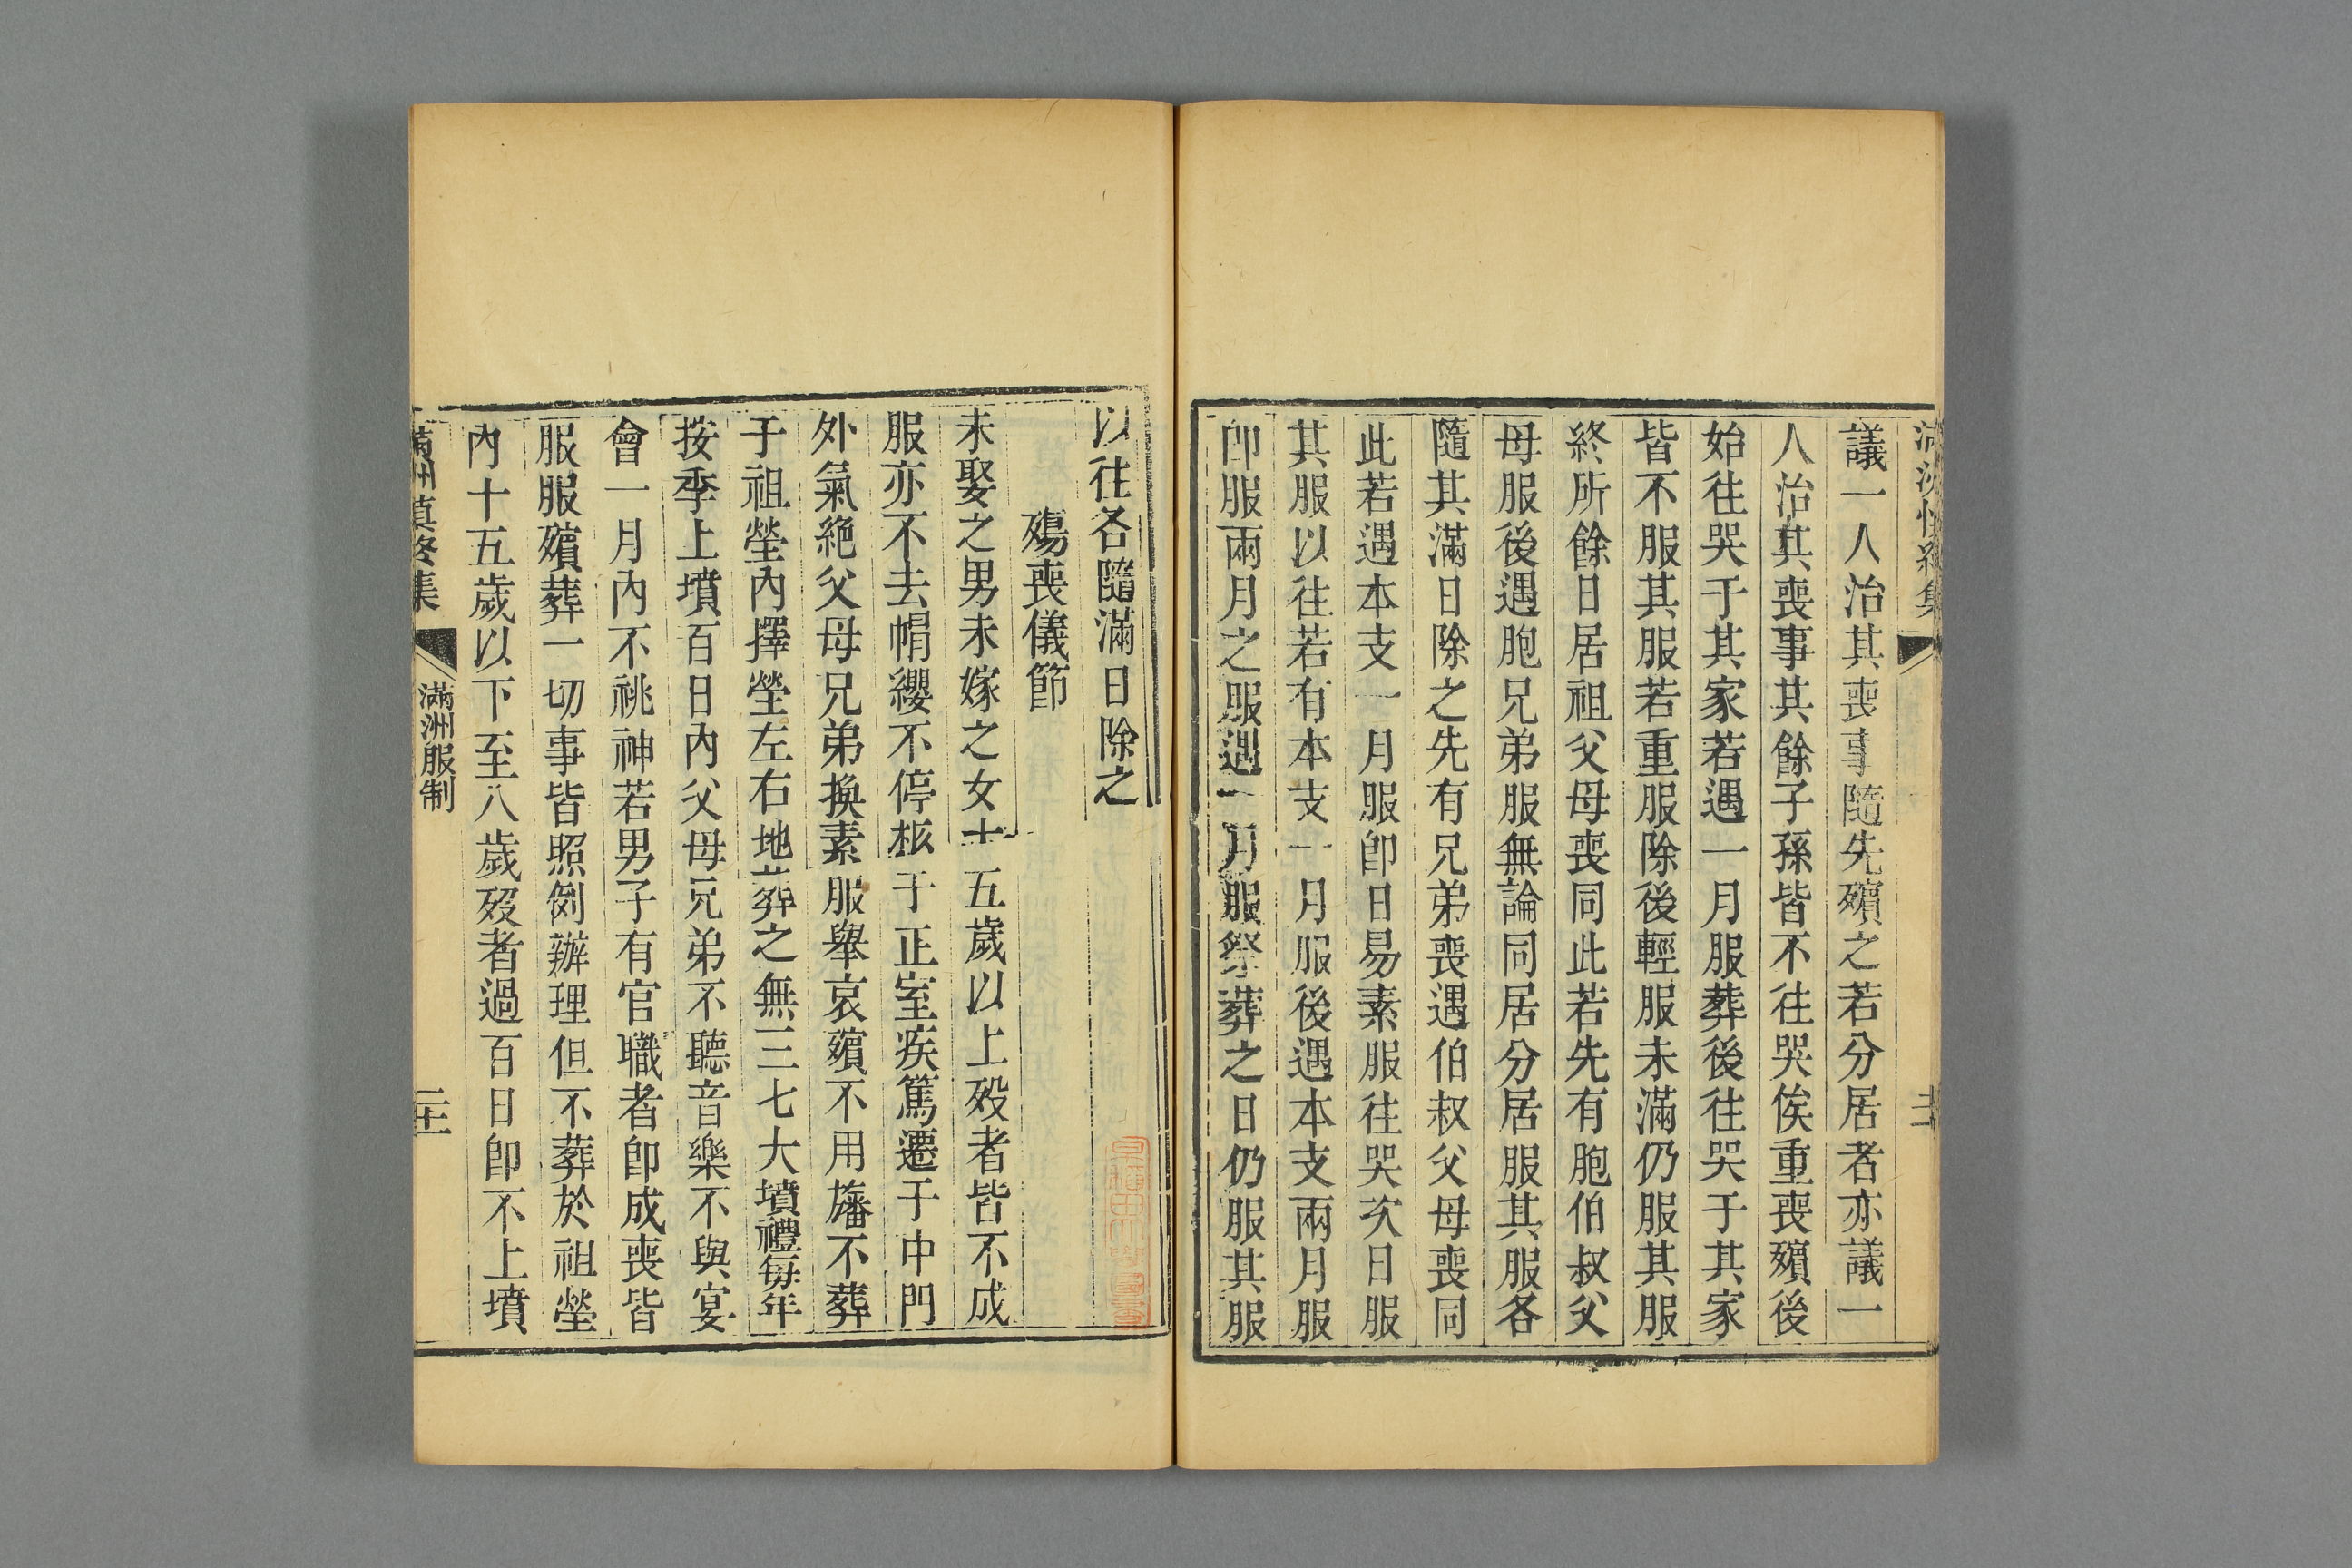 議一人治其喪事隨先殯之若分居者亦議一
人治其喪事其餘子孫皆不往哭俟重喪殯後
始往哭于其家若遇一月服葬後往哭于其家
皆不服其服若重服除後輕服未滿仍服其服
終所餘日居祖父母喪同此若先有胞伯叔父
母服後遇胞兄弟服無論同居分居服其服各
隨其滿日除之先有兄弟喪遇伯叔父母喪同
此若遇本支一月服卽日易素服往哭次日服
其服以往若有本支一月服後遇本支兩月服
卽服兩月之服遇一月服祭葬之日仍服其服
以往各隨滿日除之
殤喪儀節
未娶之男未嫁之女十五歲以上殁者皆不成
服亦不去帽纓不停柩于正室疾篤遷于中門
外氣絕父母兄弟換素服舉哀殯不用旛不葬
于祖塋內擇塋左右地葬之無三七大墳禮每年
按季上墳百日內父母兄弟不聽音樂不與宴
會一月內不祧神若男子有官職者卽成喪皆
服服殯葬一切事皆照例辦理但不葬於祖塋
內十五歲以下至八歲殁者過百日卽不上墳
滿洲慎終集
滿洲服制